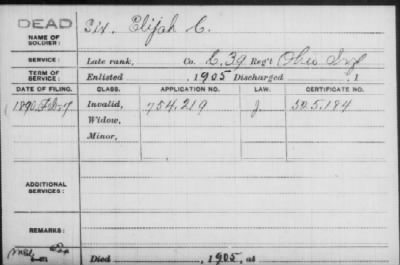 DEAD
NAME OF SOLDIER: Six. Elijah C.
SERVICE: Late rank, Co. C. 39 Reg't Ohio Inf
TERM OF SERVICE: Enlisted , 1905 Discharged , 1
DATE OF FILING. CLASS. APPLICATION NO. LAW. CERTIFICATE NO.
1890 Feb 7 Invalid, 754.219 J 505.184
Widow,
Minor,
ADDITIONAL SERVICES:
REMARKS:
Died , 1905, at